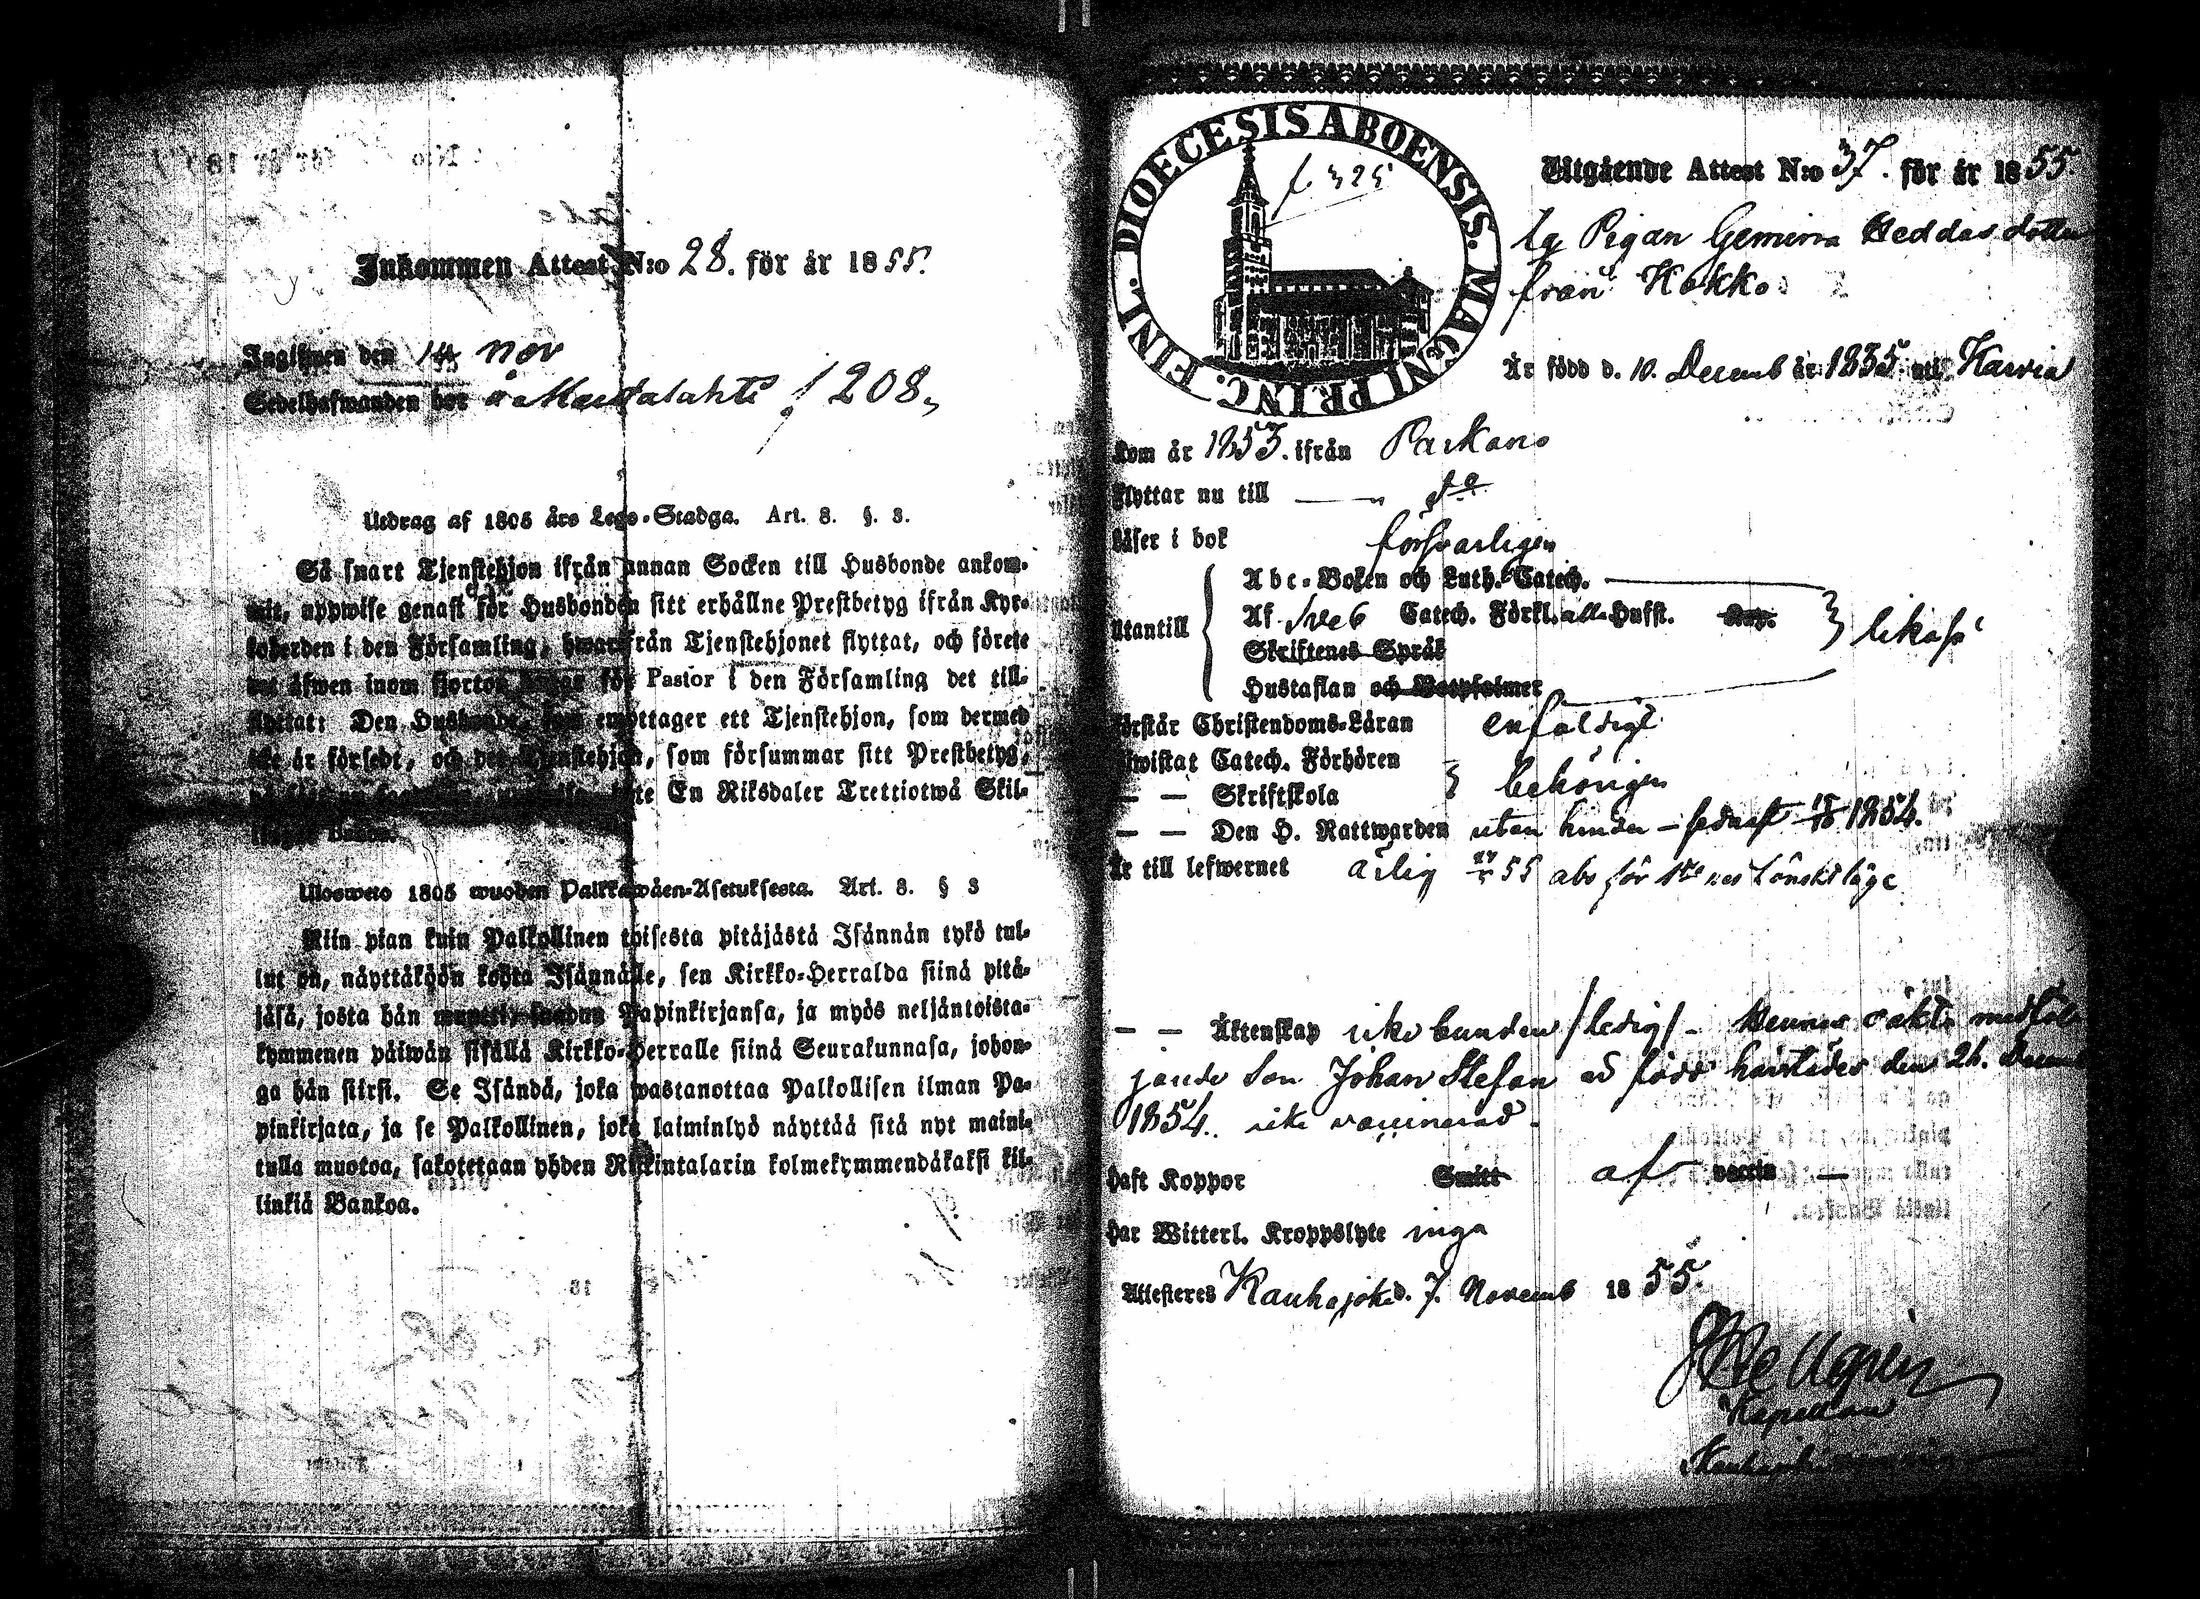 Inkommen Attest N:o 28. för år 1855.
Ingifwen den 14 nov
Sedelhafwanden bor å f 208,
Utdrag af 1805 års Lego-Stadga. Art. 8. §. 3.
Så snart Tjenstehjon ifrån annan Socken till Husbonde ankom-
mit, uppwise genast för Husbonden sitt erhållne Prestbetyg ifrån Kyr-
koherden i den Församling, hwarifrån Tjenstehjonet flyttat, och förete
det äfwen inom fjorton dagar för Pastor i den Församling det till-
flyttat: Den Husbonde, som emottager ett Tjenstehjon, som dermed
icke är försedt, och det Tjenstehjon, som försummar sitt Prestbetyg,
En Riksdaler Trettiotwå Skil-
Ulosweto 1805 wuoden Palkkawäen-Asetuksesta. Art. 8. § 3
Niin pian kuin Palkollinen toisesta pitäjästä Isännän tykö tul-
lut on, näyttäköön kohta Isännälle, sen Kirkko-Herralda siinä pitä-
jäsä, josta hän muutti, saadun Papinkirjansa, ja myös neljäntoista-
kymmenen päiwän sisällä Kirkko-Herralle siinä Seurakunnasa, johon-
ga hän siirsi. Se Isändä, joka wastanottaa Palkollisen ilman Pa-
pinkirjata, ja se Palkollinen, joka laiminlyö näyttää sitä nyt maini-
tulla muotoa, sakotetaan yhden Riikintalarin kolmekymmendäkaksi kil-
linkiä Bankoa.
DIOECESIS ABOENSIS. MAGNI PRINC. FINL.
f 325
Utgående Attest N:o 37. för år 1855.
Pigan Gemima Heddasdotter
från Kokko
Är född d. 10. Decemb år 1835 uti Karvia
Kom år 1853. ifrån Parkano
Flyttar nu till — " do
Läser i bok försvarligen
Utantill
Abc-Boken och Luth. Catech.
Af Sveb Catech. Förkl. alla Hufst.
Skriftenes Språk
Hustaflan och Botpsalmer
likaså
Förstår Christendoms-Läran enfaldigt
Bewistat Catech. Förhören
— — Skriftskola
behörigen
— — Den H. Nattwarden utan hinder – sednast 1854.
Är till lefwernet ärlig 55 abs för 1sta res lönskaläge
— — Äktenskap icke bunden /ledig/ – Hennes oäkta medföl-
jande Son Johan Stefan är född härstädes den 26. Decemb
1854. icke vaccinerad.
Haft Koppor Smitt af vaccin —
Har Witterl. Kroppslyte inga
Attesteres Kauhajoki d. 7. Novemb 1855.
Hellgrén
Kapellan